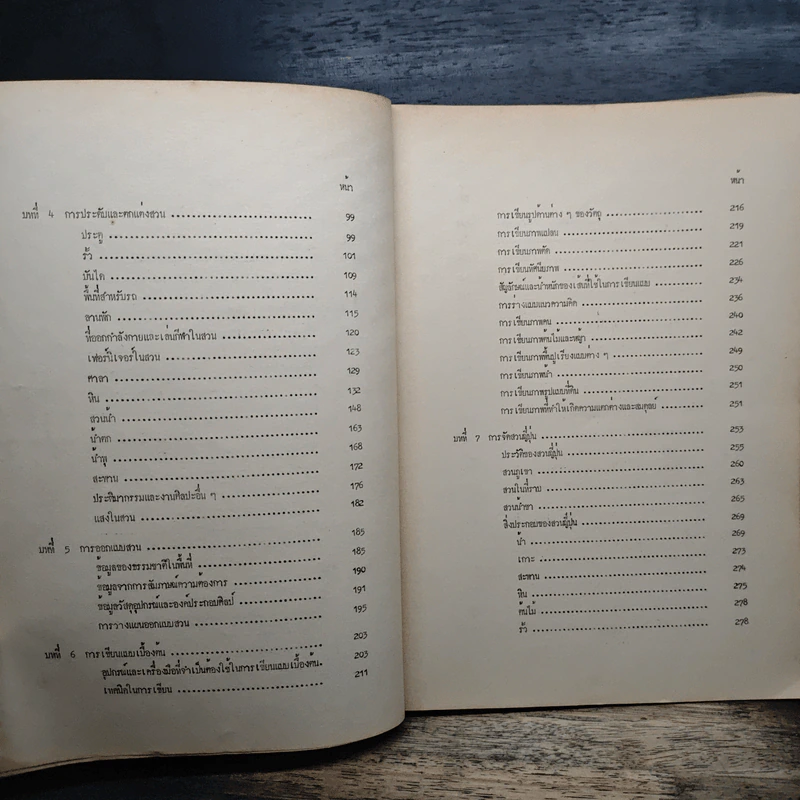 หน้า
บทที่ 4 การประดับและตกแต่งสวน 99
ประตู 99
รั้ว 101
บันได 109
พื้นที่สำหรับรถ 114
ลานพัก 115
ที่ออกกำลังกายและเล่นกีฬาในสวน 120
เฟอร์นิเจอร์ในสวน 123
ศาลา 129
หิน 132
สวนน้ำ 148
น้ำตก 163
น้ำพุ 168
สะพาน 172
ประติมากรรมและงานศิลปะอื่น ๆ 176
แสงในสวน 182
บทที่ 5 การออกแบบสวน 185
ข้อมูลของธรรมชาติในพื้นที่ 185
ข้อมูลจากการสัมภาษณ์ความต้องการ 190
ข้อมูลวัสดุอุปกรณ์และองค์ประกอบศิลป์ 191
การวางแผนออกแบบสวน 195
บทที่ 6 การเขียนแบบเบื้องต้น 203
อุปกรณ์และเครื่องมือที่จำเป็นต้องใช้ในการเขียนแบบเบื้องต้น. 203
เทคนิคในการเขียน 211
หน้า
การเขียนรูปด้านต่าง ๆ ของวัตถุ 216
การเขียนภาพแปลน 219
การเขียนภาพตัด 221
การเขียนทัศนียภาพ 226
สัญลักษณ์และน้ำหนักของเส้นที่ใช้ในการเขียนแบบ 234
การร่างแบบแนวความคิด 236
การเขียนภาพคน 240
การเขียนภาพต้นไม้และหญ้า 242
การเขียนภาพพื้นปูเรียงแบบต่าง ๆ 249
การเขียนภาพน้ำ 250
การเขียนภาพรูปแบบที่ดิน 251
การเขียนภาพที่ทำให้เกิดความแตกต่างและสมดุลย์ 251
บทที่ 7 การจัดสวนญี่ปุ่น 253
ประวัติของสวนญี่ปุ่น 255
สวนภูเขา 260
สวนในที่ราบ 263
สวนน้ำชา 265
สิ่งประกอบของสวนญี่ปุ่น 269
น้ำ 269
เกาะ 273
สะพาน 274
หิน 275
ต้นไม้ 278
รั้ว 278